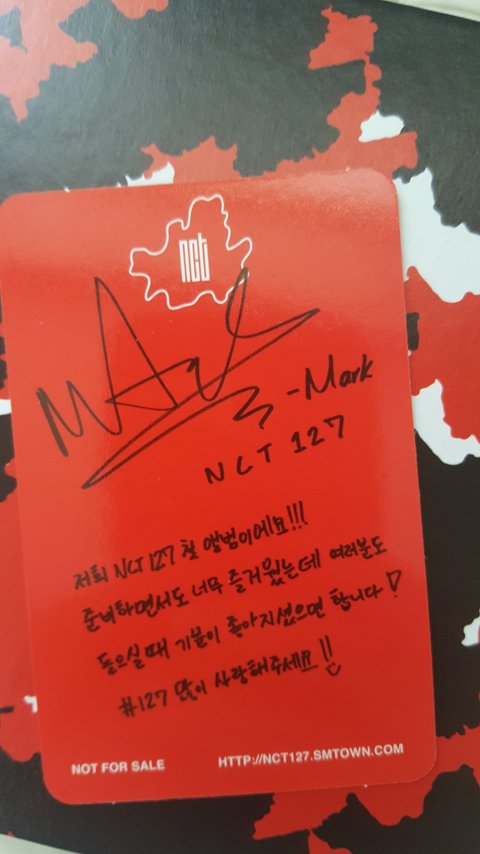 nct
MARK
-Mark
NCT 127
저희 NCT 127 첫 앨범이에요!!!
준비하면서도 너무 즐거웠는데 여러분도
들으실때 기분이 좋아지셨으면 합니다♡
#127 많이 사랑해주세요!!
NOT FOR SALE
HTTP://NCT127.SMTOWN.COM